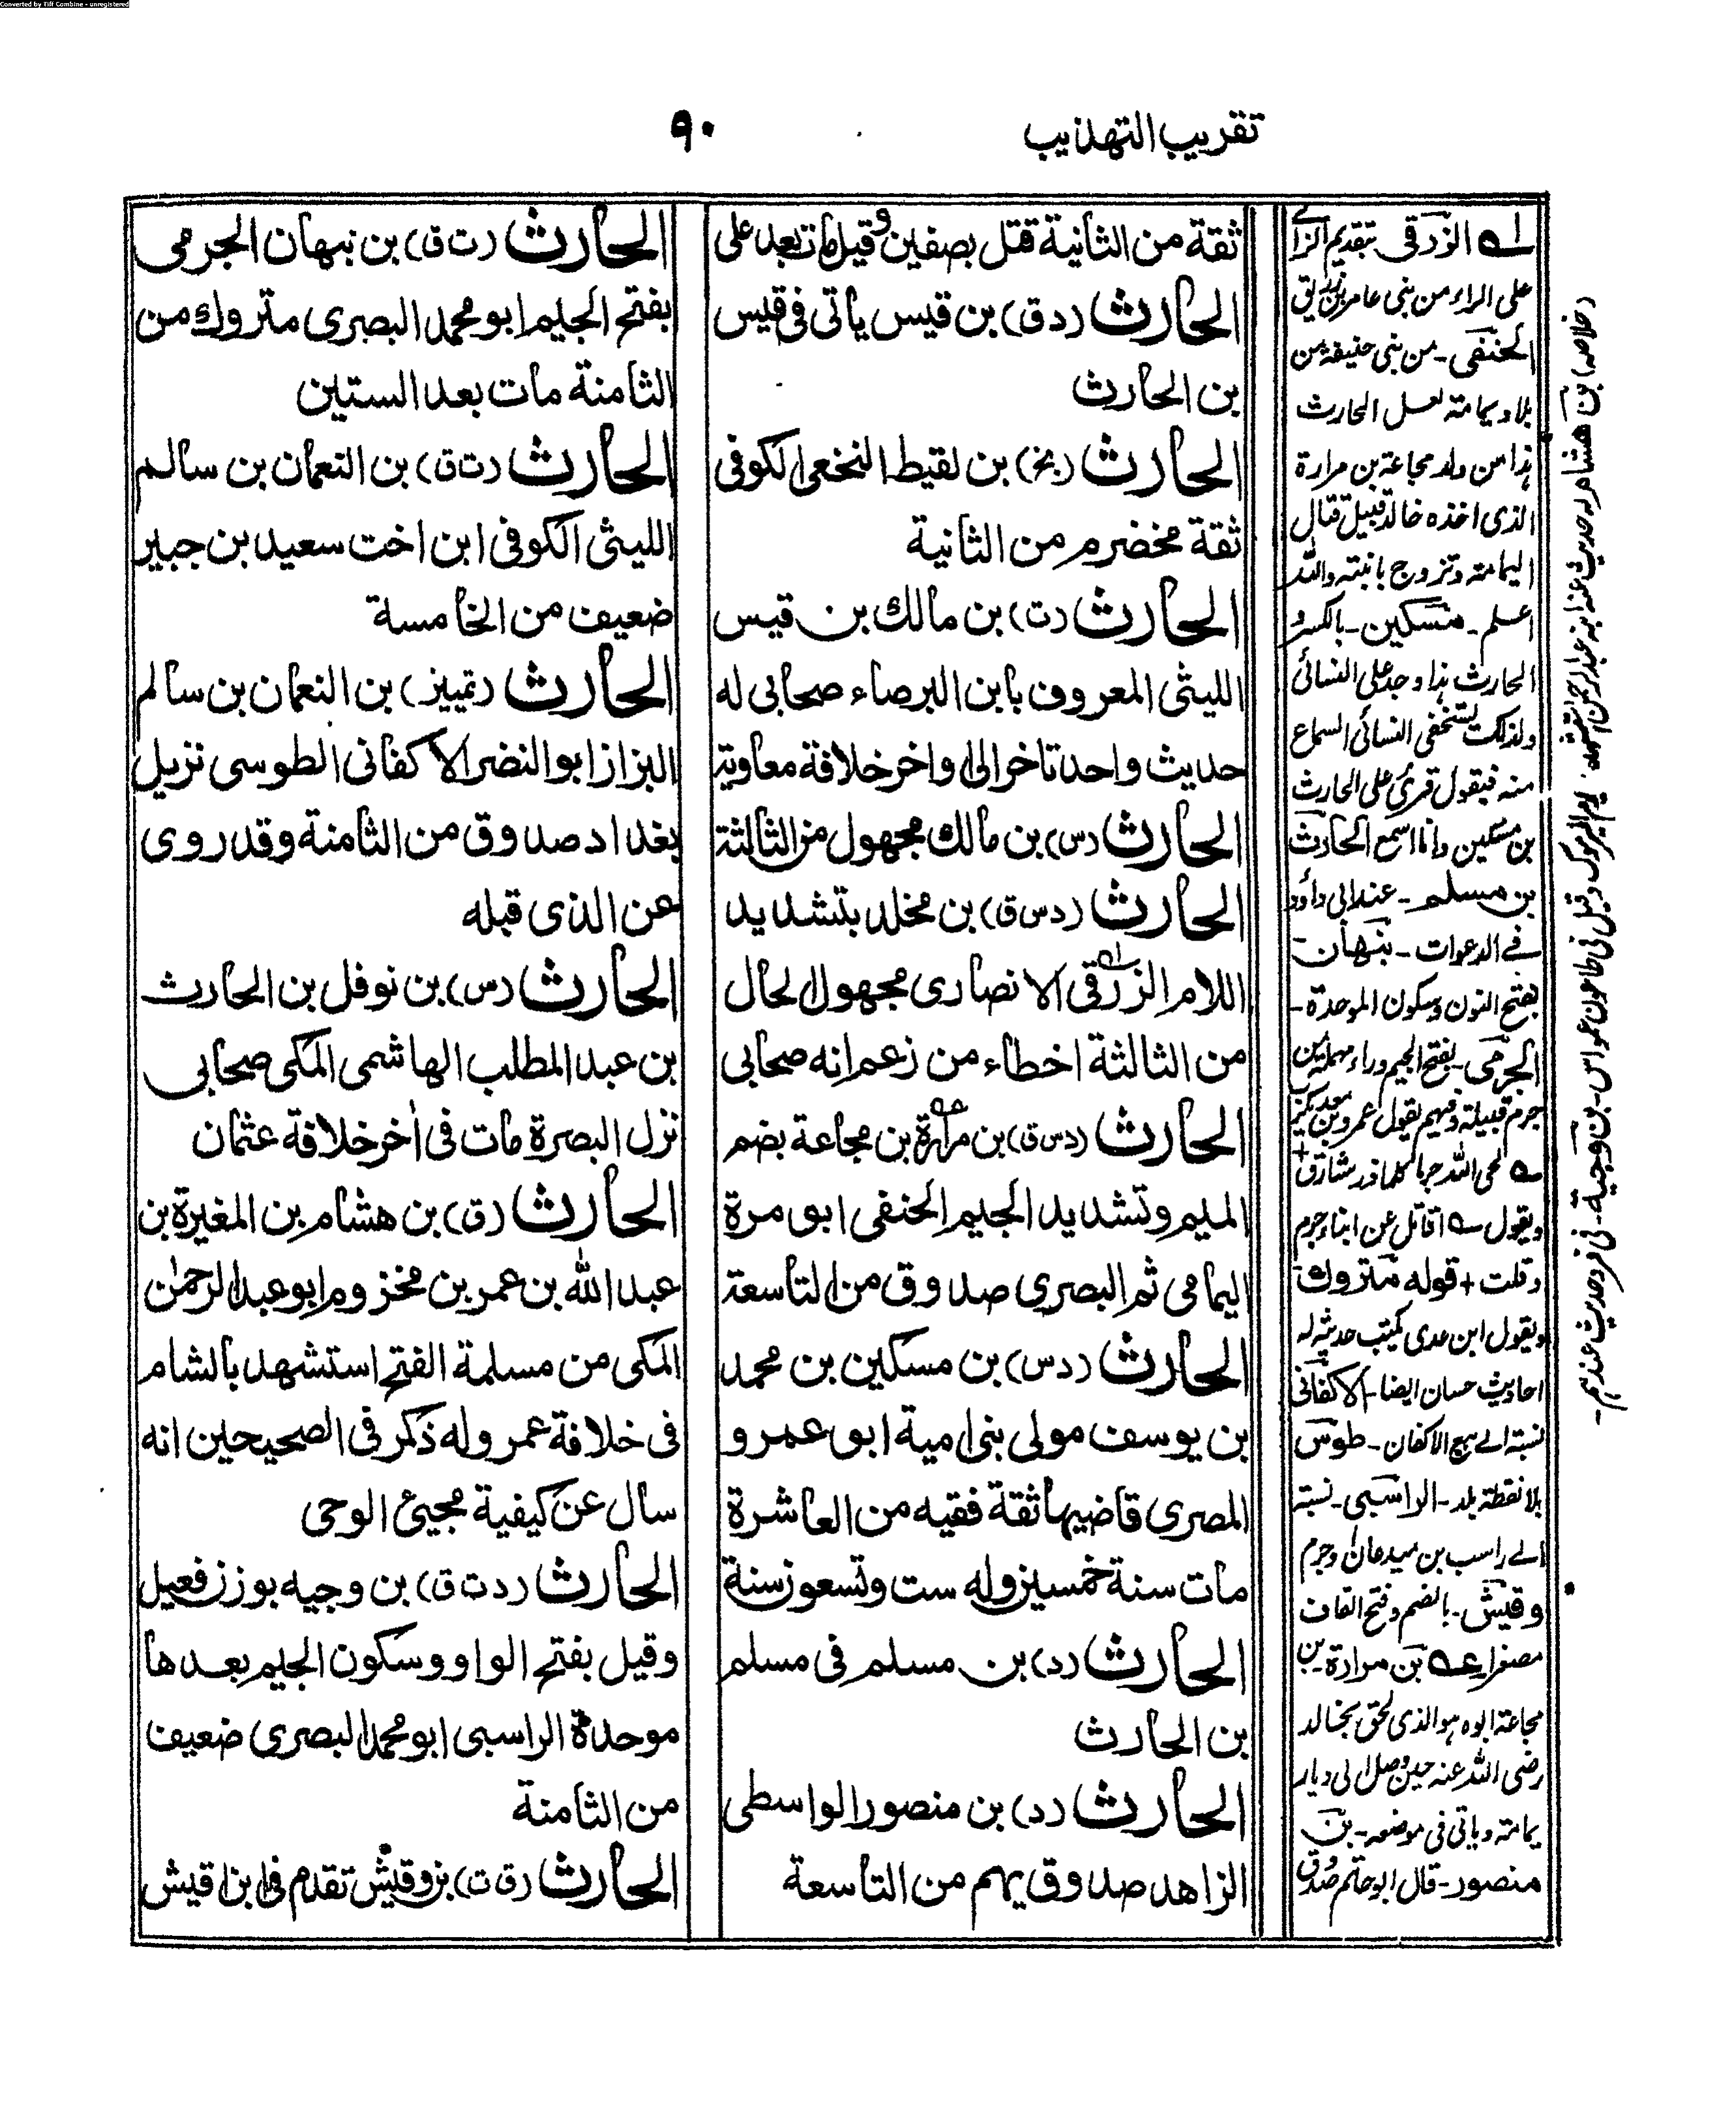 Converted by Tiff Combine - unregistered
تقريب التهذيب
٩٠
ثقة من الثانية قتل بصفين وقيل مات بعد على
الحارث (د ق) بن قيس ياتى فى قيس
بن الحارث
الحارث (بخ) بن لقيط النخعى الكوفى
ثقة مخضرم من الثانية
الحارث (ت) بن مالك بن قيس
الليثى المعروف بابن البرصاء صحابى له
حديث واحد تاخر الى واخر خلافة معاوية
الحارث (س) بن مالك مجهول من الثالثة
الحارث (د س ق) بن مخلد بتشديد
اللام الزرقى الانصارى مجهول الحال
من الثالثة اخطاء من زعم انه صحابى
الحارث (د س ق) بن مرة بن مجاعة بضم
الميم وتشديد الجيم الحنفى ابو مرة
اليمامى ثم البصرى صدوق من التاسعة
الحارث (د س) بن مسكين بن محمد
بن يوسف مولى بنى امية ابو عمرو
المصرى قاضيها ثقة فقيه من العاشرة
مات سنة خمسين وله ست وتسعون سنة
الحارث (د) بن مسلم فى مسلم
بن الحارث
الحارث (د) بن منصور الواسطى
الزاهد صدوق يهم من التاسعة
الحارث (ت ق) بن نبهان الجرمى
بفتح الجيم ابو محمد البصرى متروك من
الثامنة مات بعد الستين
الحارث (ت ق) بن النعمان بن سالم
الليثى الكوفى ابن اخت سعيد بن جبير
ضعيف من الخامسة
الحارث (تمييز) بن النعمان بن سالم
البزاز ابو النضر الاكفانى الطوسى نزيل
بغداد صدوق من الثامنة وقد روى
عن الذى قبله
الحارث (س) بن نوفل بن الحارث
بن عبد المطلب الهاشمى المكى صحابى
نزل البصرة مات فى أخر خلافة عثمان
الحارث (ق) بن هشام بن المغيرة بن
عبد الله بن عمر بن مخزوم ابو عبد الرحمٰن
المكى من مسلمة الفتح استشهد بالشام
فى خلافة عمر وله ذكر فى الصحيحين انه
سال عن كيفية مجيئ الوحى
الحارث (د ت ق) بن وجيه بوزن فعيل
وقيل بفتح الواو وسكون الجيم بعدها
موحدة الراسبى ابو محمد البصرى ضعيف
من الثامنة
الحارث (ق ت) بن وقيش تقدم فى ابن اقيش
لـه الزرقى بتقديم الزاے
على الراء من بنى عامر بن زريق
الحنفى - من بنى حنيفة من
بلاد يمامة لعل الحارث
هذا من ولد مجاعة بن مرارة
الذى اخذه خالد قبيل قتال
اليمامة وتزوج بابنته والله
اعلم - مسكين - بالكسر و
الحارث هذا وجد على النسائى
ولذلك يستخفى النسائى السماع
منه فيقول قرئ على الحارث
بن مسكين وانا اسمع الحارث
بن مسلم - عند ابى داؤد
فے الدعوات - نبهان -
بفتح النون وسكون الموحدة -
الجرمى - بفتح الجيم وراء مهملة من
جرم قبيلة وفيهم يقول عمرو بن معديكرب
؎ لحى الله جرما كلما ذر شارق +
ويقول ؎ اقاتل عن ابناء جرم
وقلت + قوله متروك
ويقول ابن عدى يكتب حديثه له
احاديث حسان ايضا - الاكفانى
نسبة الے بيع الاكفان - طوس
بلا نقطة بلد - الراسبى - نسبة
الے راسب بن ميدعان وجرم
وقيش - بالضم وفتح القاف
مصغرا عـه بن مرارة - بن
مجاعة ابوه هو الذى لحق بخالد
رضى الله عنه حين وصل الى ديار
يمامة وياتى فى موضعه - بن
منصور - قال ابو حاتم صدوق
(خلاصه) بن هشام له حديث عنه ابنه عبد الرحمن يوم اليرموك وقيل فى طاعون عمواس - بن وجيه - فى فرد حديث عندهم -